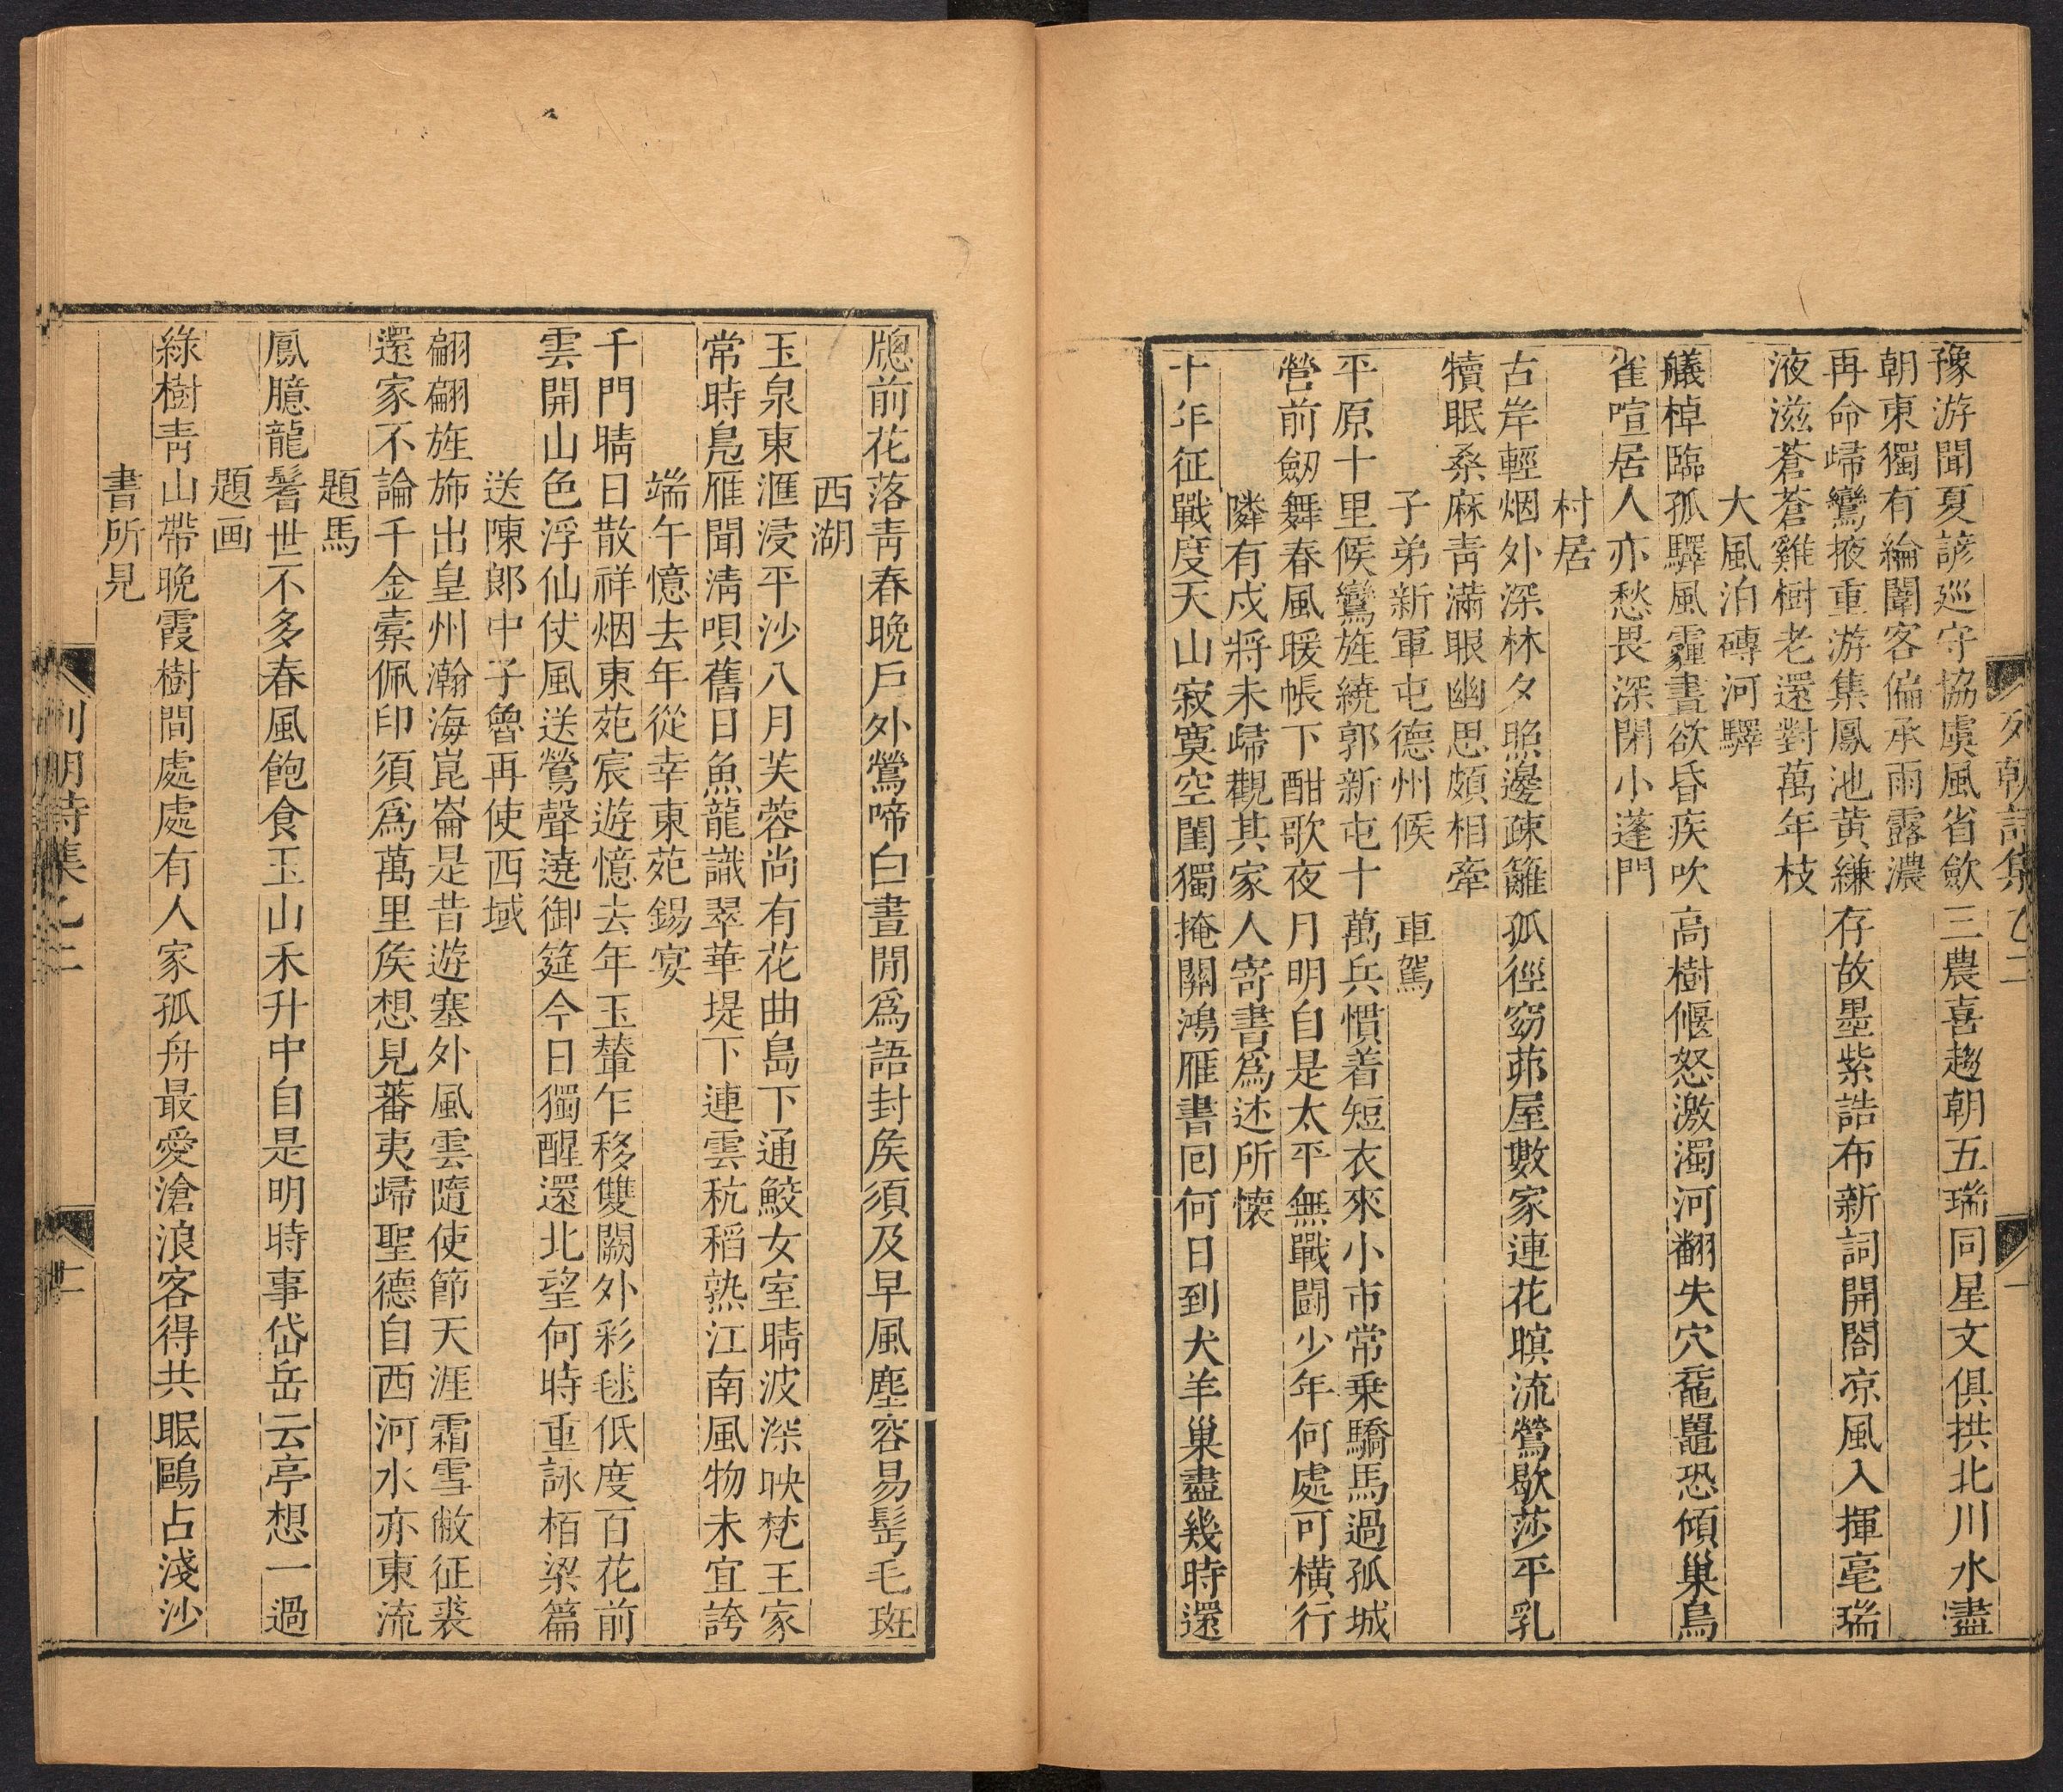 豫游聞夏諺巡守協虞風省歛三農喜趨朝五瑞同星文俱拱北川水盡
朝東獨有綸闈客偏承雨露濃
再命歸鸞掖重游集鳳池黄縑存故墨紫誥布新詞開閤凉風入揮毫瑞
液滋蒼蒼雞樹老還對萬年枝
大風泊磚河驛
艤棹臨孤驛風霾晝欲昏疾吹高樹偃怒激濁河翻失穴黿鼉恐傾巢鳥
雀喧居人亦愁畏深閉小蓬門
村居
古岸輕烟外深林夕照邊疎籬孤徑窈茆屋數家連花暝流鶯歇莎平乳
犢眠桑麻青滿眼幽思頗相牽
子弟新軍屯德州候車駕
平原十里候鸞旌繞郭新屯十萬兵慣着短衣來小市常乗驕馬過孤城
營前劒舞春風暖帳下酣歌夜月明自是太平無戰鬪少年何處可横行
隣有戍將未歸觀其家人寄書爲述所懷
十年征戰度天山寂寞空閨獨掩關鴻雁書囘何日到犬羊巢盡幾時還
牕前花落青春晚戶外鶯啼白晝閒爲語封矦須及早風塵容易髩毛斑
西湖
玉泉東滙浸平沙八月芙蓉尚有花曲島下通鮫女室晴波深映梵王家
常時鳧雁聞淸唄舊日魚龍識翠華堤下連雲秔稻熟江南風物未宜誇
端午憶去年從幸東苑錫宴
千門晴日散祥烟東苑宸遊憶去年玉輦乍移雙闕外彩毬低度百花前
雲開山色浮仙仗風送鶯聲遶御筵今日獨醒還北望何時重詠栢梁篇
送陳郎中子魯再使西域
翩翩旌斾出皇州瀚海崑崙是昔遊塞外風雲隨使節天涯霜雪敝征裘
還家不論千金槖佩印須爲萬里矦想見蕃夷歸聖德自西河水亦東流
題馬
鳳臆龍鬐世不多春風飽食玉山禾升中自是明時事岱岳云亭想一過
題画
綠樹青山帶晚霞樹間處處有人家孤舟最愛滄浪客得共眠鷗占淺沙
書所見
列朝詩集乙二
一
二